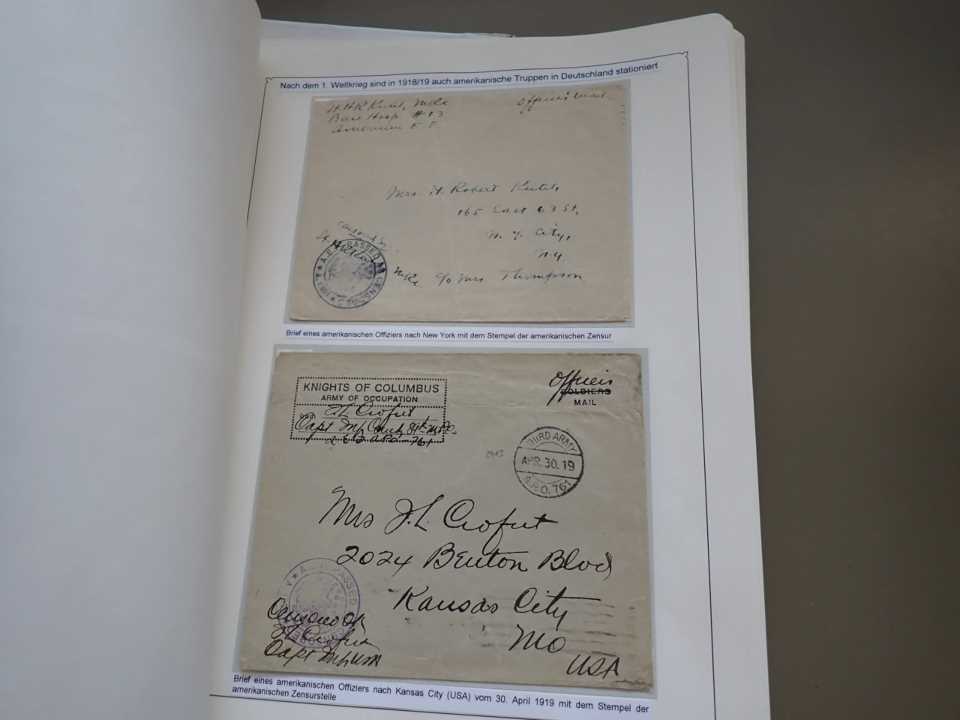 Nach dem 1. Weltkrieg sind in 1918/19 auch amerikanische Truppen in Deutschland stationiert
Base Hosp # 83
American E. F.
Officer's Mail
Mrs. H. Robert
165 East 63 St,
N. Y. City,
N.Y.
c/o Mrs. Thompson
Censored by
A.E.F. PASSED CENSOR
Brief eines amerikanischen Offiziers nach New York mit dem Stempel der amerikanischen Zensur
KNIGHTS OF COLUMBUS
ARMY OF OCCUPATION
J L Crofut
Capt
A.P.O. 761
Officers
SOLDIERS
MAIL
THIRD ARMY
APR. 30. 19
A.P.O. 761
Mrs J. L. Crofut
2024 Benton Blvd
Kansas City
Mo
USA
PASSED
Censored OK
J L Crofut
Capt
Brief eines amerikanischen Offiziers nach Kansas City (USA) vom 30. April 1919 mit dem Stempel der
amerikanischen Zensurstelle